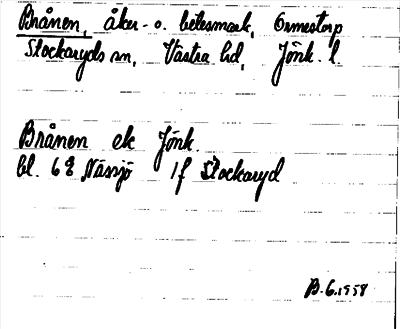 Brånen, åker- o. betesmark, Ormestorp
Stockaryds sn, Västra hd, Jönk. l.
Brånen ek Jönk.
bl. 68 Nässjö 1f Stockaryd
B.G.1958